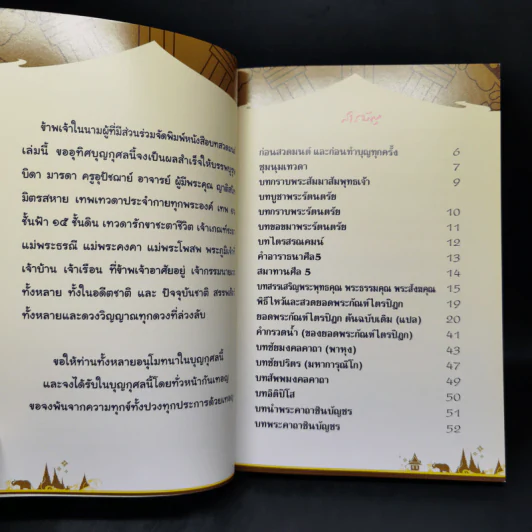 ข้าพเจ้าในนามผู้ที่มีส่วนร่วมจัดพิมพ์หนังสือบทสวดมนต์
เล่มนี้ ขออุทิศบุญกุศลนี้จงเป็นผลสำเร็จให้บรรพบุรุษ
บิดา มารดา ครูอุปัชฌาย์ อาจารย์ ผู้มีพระคุณ ญาติ
มิตรสหาย เทพเทวดาประจำกายทุกพระองค์ เทพ
ชั้นฟ้า ๑๕ ชั้นดิน เทวดารักษาชะตาชีวิต เจ้าเกณฑ์ชะตา
แม่พระธรณี แม่พระคงคา แม่พระโพสพ พระภูมิเจ้าที่
เจ้าบ้าน เจ้าเรือน ที่ข้าพเจ้าอาศัยอยู่ เจ้ากรรมนายเวร
ทั้งหลาย ทั้งในอดีตชาติ และ ปัจจุบันชาติ
ทั้งหลายและดวงวิญญาณทุกดวงที่ล่วงลับ
ขอให้ท่านทั้งหลายอนุโมทนาในบุญกุศลนี้
และจงได้รับในบุญกุศลนี้โดยทั่วหน้ากันเทอญ
ขอจงพ้นจากความทุกข์ทั้งปวงทุกประการด้วยเทอญ
สารบัญ
ก่อนสวดมนต์ และก่อนทำบุญทุกครั้ง 6
ชุมนุมเทวดา 7
บทกราบพระสัมมาสัมพุทธเจ้า 9
บทบูชาพระรัตนตรัย
บทกราบพระรัตนตรัย 10
บทขอขมาพระรัตนตรัย 11
บทไตรสรณคมน์ 12
คำอาราธนาศีล5 13
สมาทานศีล 5 14
บทสรรเสริญพระพุทธคุณ พระธรรมคุณ พระสังฆคุณ 15
พิธีไหว้และสวดยอดพระกัณฑ์ไตรปิฎก 19
ยอดพระกัณฑ์ไตรปิฎก ต้นฉบับเดิม (แปล) 20
คำกรวดน้ำ (ของยอดพระกัณฑ์ไตรปิฎก) 41
บทชัยมงคลคาถา (พาหุง) 43
บทชัยปริตร (มหาการุณิโก) 47
บทสัพพมงคลคาถา 49
บทอิติปิโส 50
บทนำพระคาถาชินบัญชร 51
บทพระคาถาชินบัญชร 52